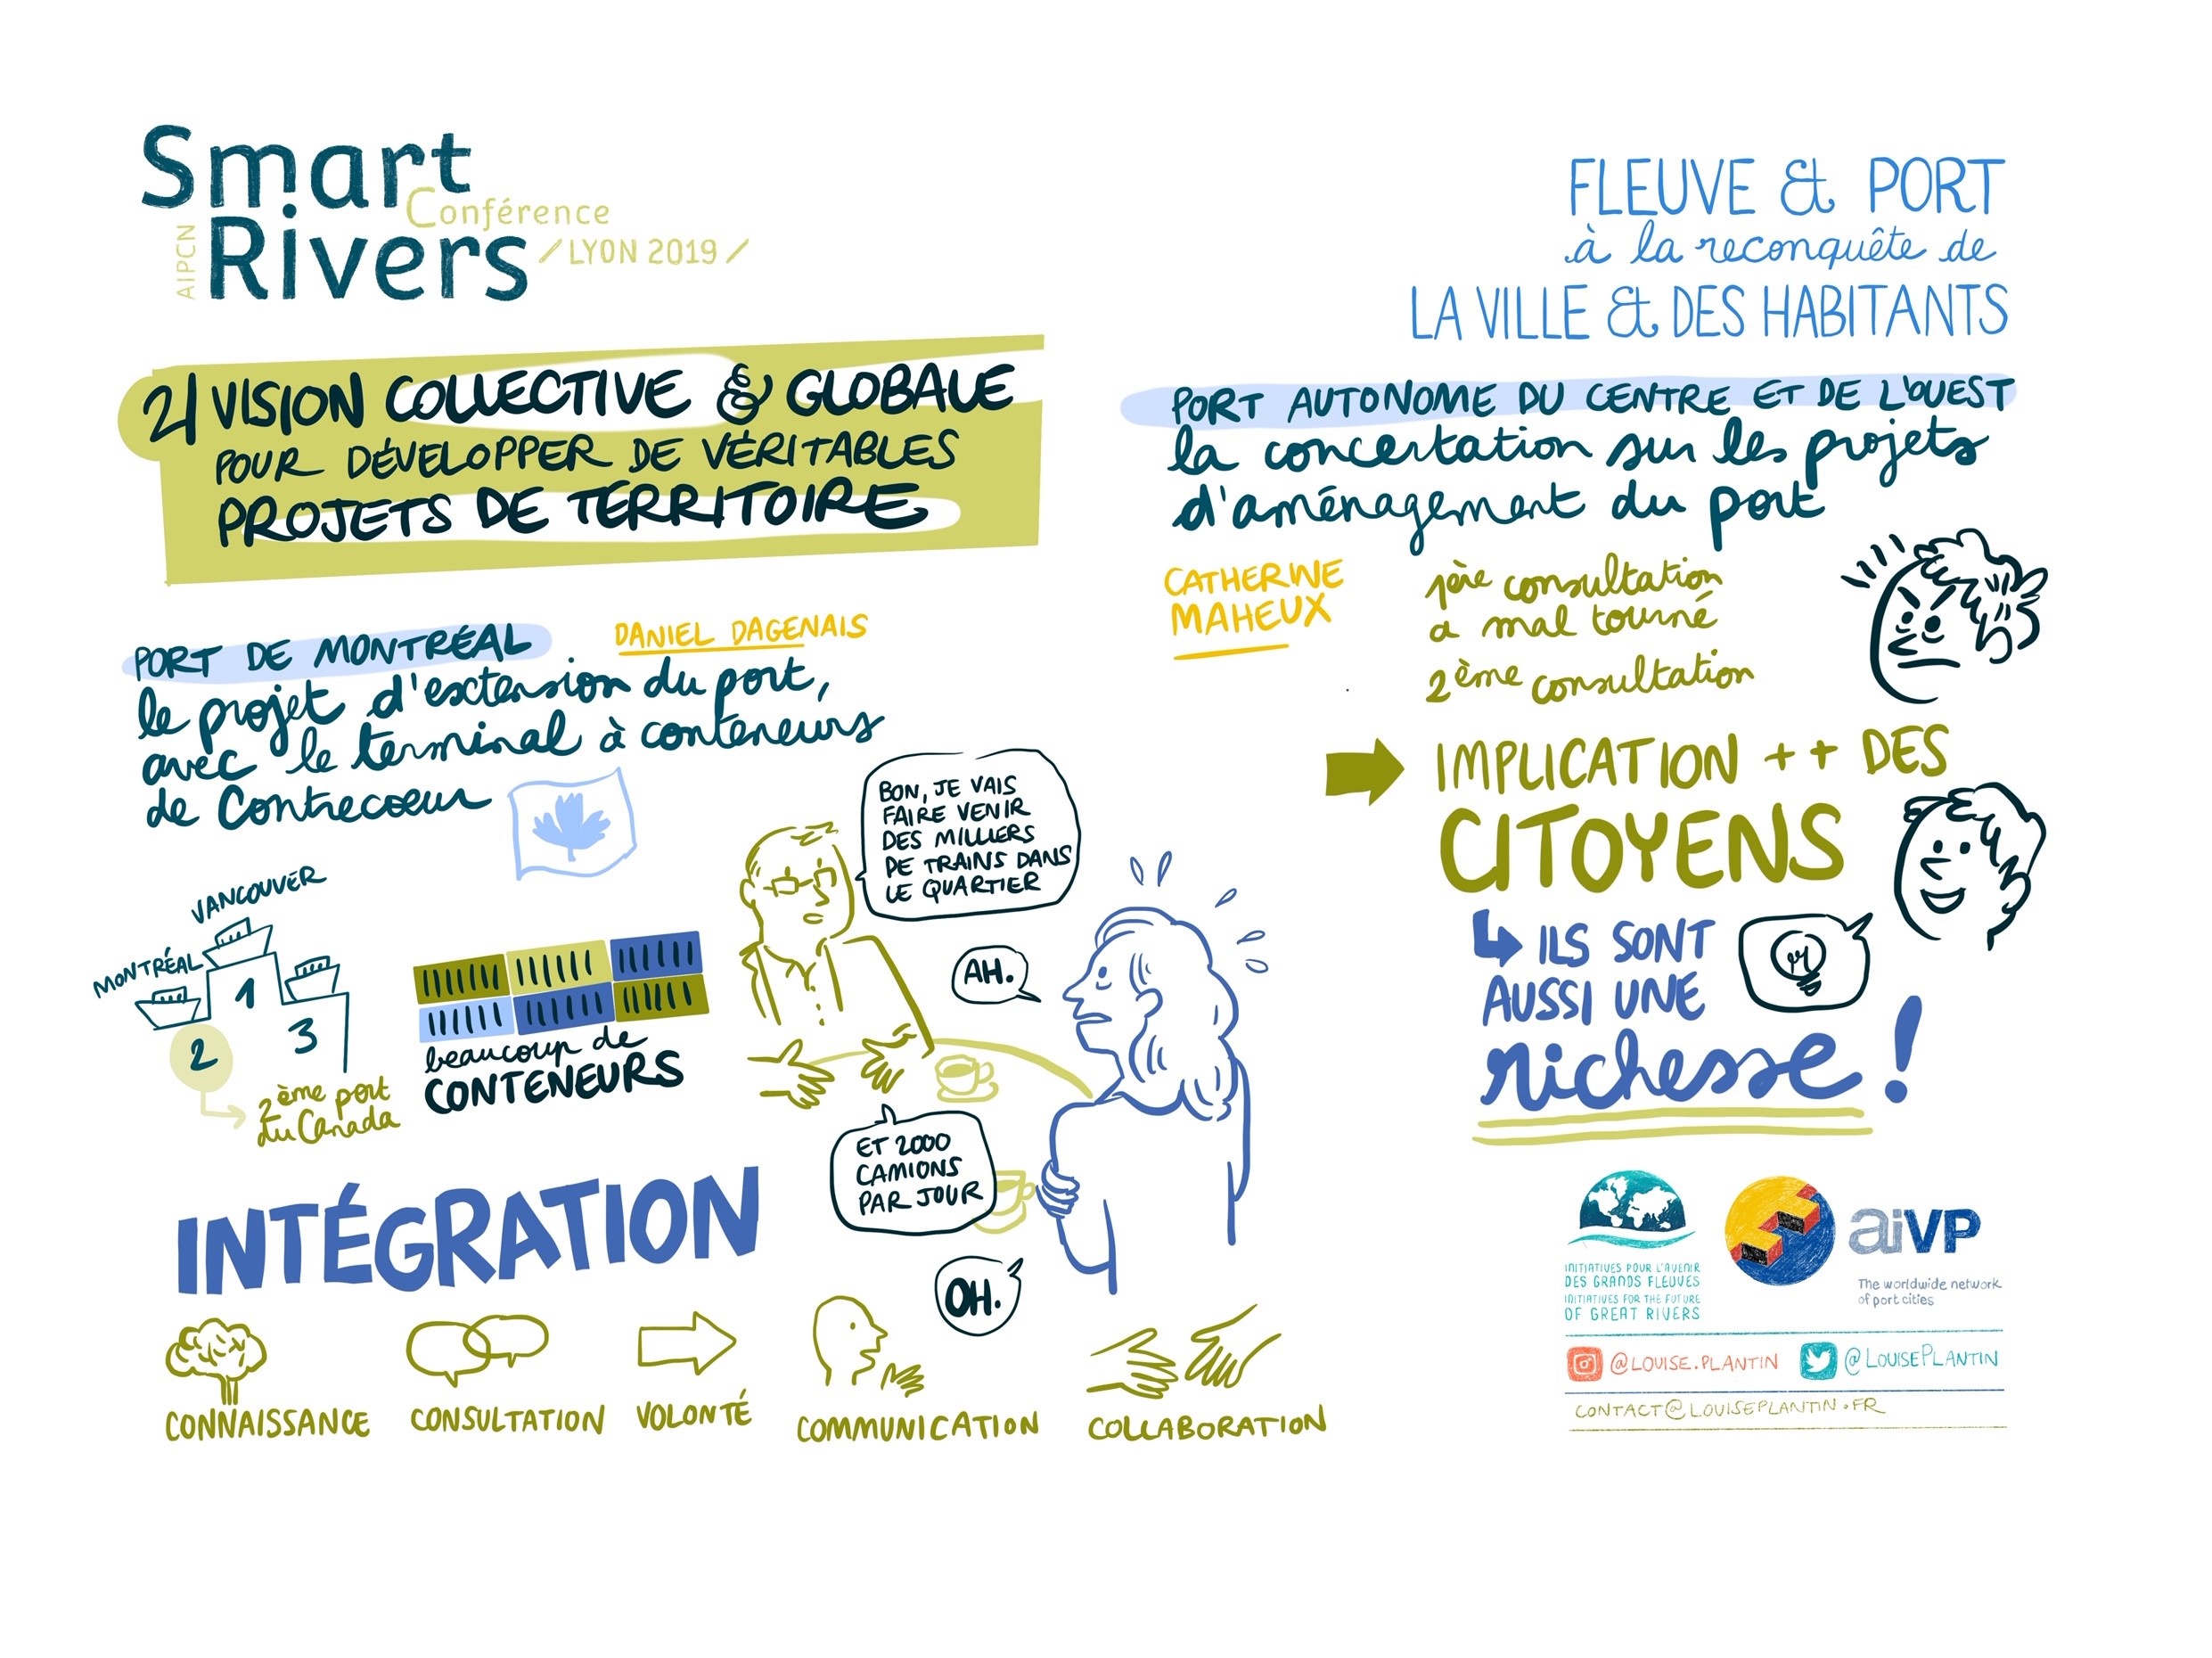 Smart
Conférence
AIPCN
Rivers
/ LYON 2019 /
FLEUVE & PORT
à la reconquête de
LA VILLE & DES HABITANTS
2/ VISION COLLECTIVE & GLOBALE
POUR DÉVELOPPER DE VÉRITABLES
PROJETS DE TERRITOIRE
PORT DE MONTRÉAL
DANIEL DAGENAIS
le projet d'extension du port,
avec le terminal à conteneurs
de Contrecœur
VANCOUVER
MONTRÉAL
1
2
3
2ème port
du Canada
beaucoup de
CONTENEURS
BON, JE VAIS
FAIRE VENIR
DES MILLIERS
DE TRAINS DANS
LE QUARTIER
AH.
ET 2000
CAMIONS
PAR JOUR
OH.
INTÉGRATION
CONNAISSANCE
CONSULTATION
VOLONTÉ
COMMUNICATION
COLLABORATION
PORT AUTONOME DU CENTRE ET DE L'OUEST
la concertation sur les projets
d'aménagement du port
CATHERINE
MAHEUX
1ère consultation
a mal tourné
2ème consultation
IMPLICATION ++ DES
CITOYENS
ILS SONT
AUSSI UNE
richesse !
INITIATIVES POUR L'AVENIR
DES GRANDS FLEUVES
INITIATIVES FOR THE FUTURE
OF GREAT RIVERS
aiVP
The worldwide network
of port cities
@LOUISE.PLANTIN
@LOUISEPLANTIN
CONTACT@LOUISEPLANTIN.FR